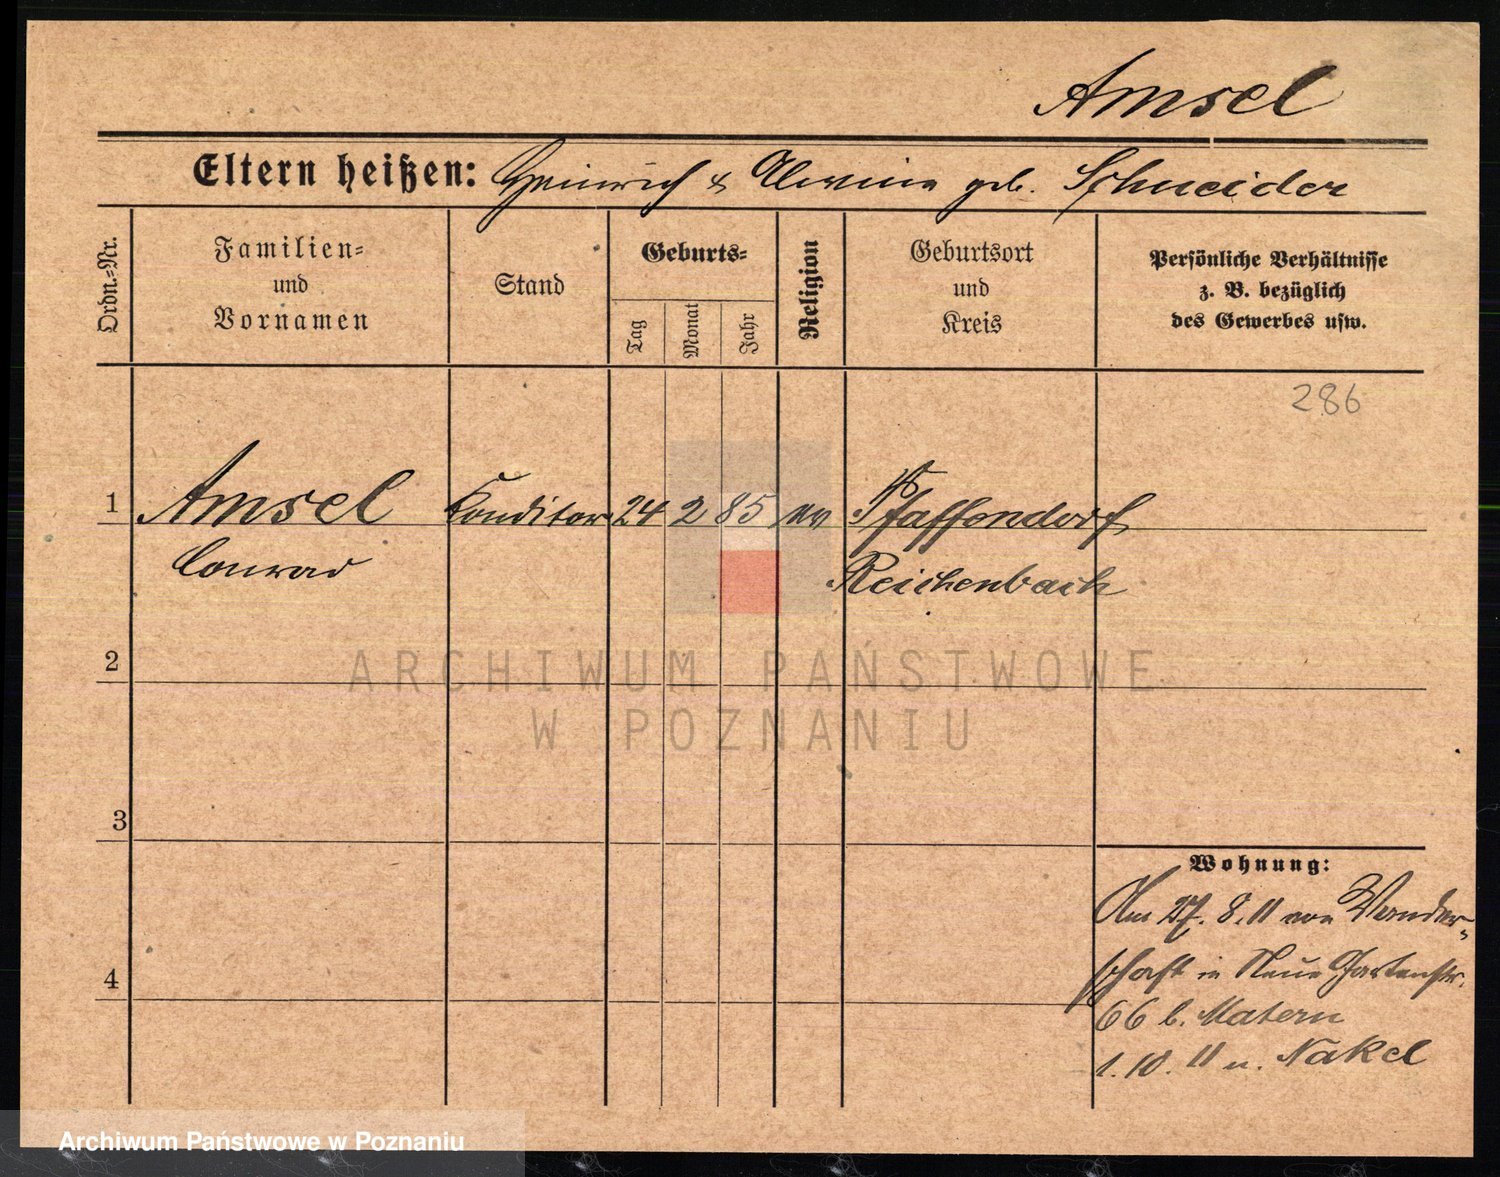 Amsel
Eltern heißen: Heinrich & Alwine geb. Schneider
Ordn.=Nr.
Familien=
und
Vornamen
Stand
Geburts=
Tag
Monat
Jahr
Religion
Geburtsort
und
Kreis
Persönliche Verhältnisse
z. B. bezüglich
des Gewerbes usw.
286
1 Amsel Konditor 24 2 85 ev Pfaffendorf
Conrad Reichenbach
2
ARCHIWUM PAŃSTWOWE
W POZNANIU
3
Wohnung:
Am 27. 8. 11 von Wander=
schaft in Neue Gartenstr.
4
66 b. Matern
1. 10. 11 n. Nakel
Archiwum Państwowe w Poznaniu